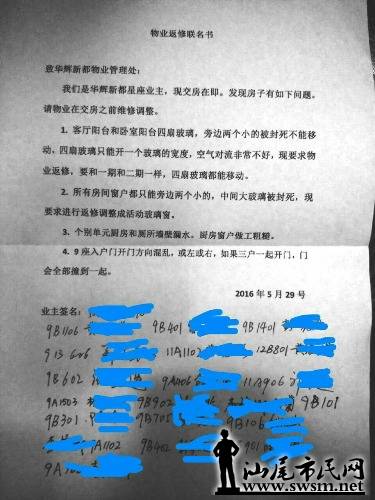 物业返修联名书
致华辉新都物业管理处：
我们是华辉新都星座业主，现交房在即。发现房子有如下问题。
请物业在交房之前维修调整。
1. 客厅阳台和卧室阳台四扇玻璃，旁边两个小的被封死不能移
动，四扇玻璃只能开一个玻璃的宽度，空气对流非常不好，现要求物
业返修，要和一期和二期一样，四扇玻璃都能移动。
2. 所有房间窗户都只能旁边两个小的，中间大玻璃被封死，现
要求进行返修调整成活动玻璃窗。
3. 个别单元厨房和厕所墙壁漏水。厨房窗户做工粗糙。
4. 9座入户门开门方向混乱，或左或右，如果三户一起开门，门
会全部撞到一起。
2016 年 5 月 29 号
业主签名：
9B1106 9B401 9B1401
913606 11A1102 12B801
9B602 9A406 11A906
9A1503 9B902 9B101
9B301 9A705 9B106
9A1102 9B402 901
9A
汕尾市民网
www.swsm.net